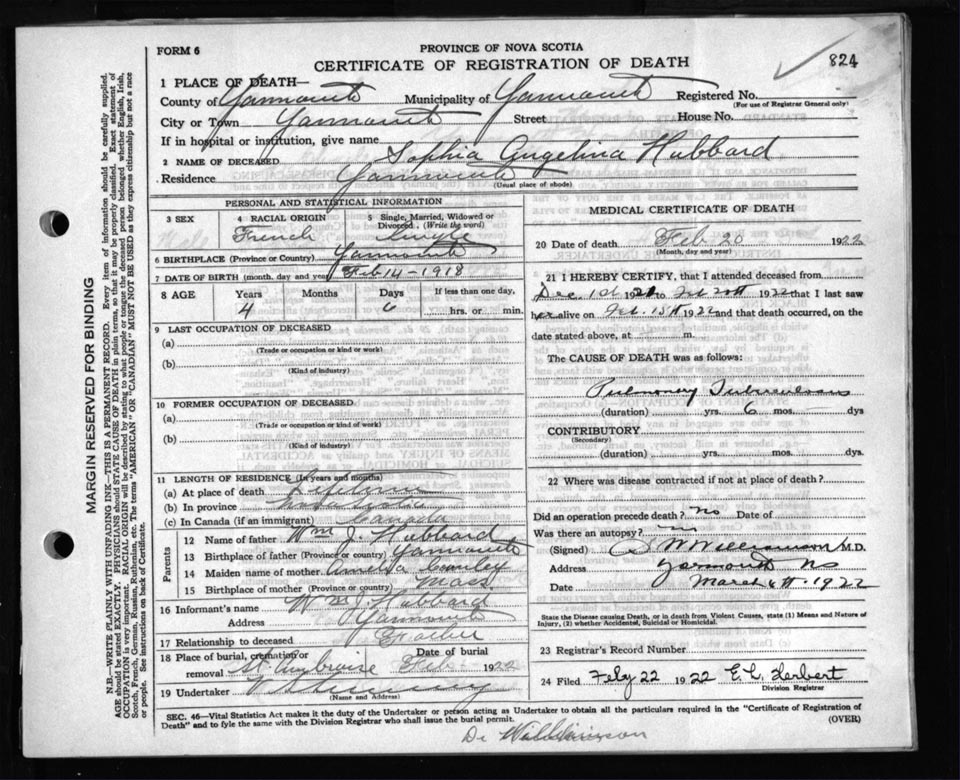 FORM 6
PROVINCE OF NOVA SCOTIA
CERTIFICATE OF REGISTRATION OF DEATH
824
1 PLACE OF DEATH—
County of Yarmouth Municipality of Yarmouth Registered No.
(For use of Registrar General only)
City or Town Yarmouth Street House No.
If in hospital or institution, give name
2 NAME OF DECEASED Sophia Angelina Hubbard
Residence Yarmouth
(Usual place of abode)
PERSONAL AND STATISTICAL INFORMATION
3 SEX 4 RACIAL ORIGIN 5 Single, Married, Widowed or Divorced. (Write the word)
French Single
6 BIRTHPLACE (Province or Country) Yarmouth
7 DATE OF BIRTH (month, day and year) Feb 14 - 1918
8 AGE Years Months Days If less than one day,
4 6 hrs. or min.
9 LAST OCCUPATION OF DECEASED
(a)
(Trade or occupation or kind or work)
(b)
(Kind of industry)
10 FORMER OCCUPATION OF DECEASED
(a)
(Trade or occupation or kind of work)
(b)
(Kind of industry)
11 LENGTH OF RESIDENCE (In years and months)
(a) At place of death Lifetime
(b) In province Nova Scotia
(c) In Canada (if an immigrant) Canada
Parents
12 Name of father Wm J. Hubbard
13 Birthplace of father (Province or country) Yarmouth
14 Maiden name of mother Amelia
15 Birthplace of mother (Province or country) Mass.
16 Informant's name Wm J. Hubbard
Address Yarmouth
17 Relationship to deceased Father
18 Place of burial, cremation or removal St. Ambroise Date of burial Feb - 1922
19 Undertaker
(Name and Address)
MEDICAL CERTIFICATE OF DEATH
20 Date of death Feb 20 1922
(Month, day and year)
21 I HEREBY CERTIFY, that I attended deceased from
Dec. 1st 1921 to Feb 20th 1922 that I last saw
her alive on Feb. 15th 1922 and that death occurred, on the
date stated above, at m.
The CAUSE OF DEATH was as follows:
Pulmonary Tuberculosis
(duration) yrs. 6 mos. dys
CONTRIBUTORY
(Secondary)
(duration) yrs. mos. dys.
22 Where was disease contracted if not at place of death?
Did an operation precede death? no Date of
Was there an autopsy? no
(Signed) M.D.
Address Yarmouth NS
Date March 6th 1922
State the Disease causing Death, or in death from Violent Causes, state (1) Means and Nature of
Injury, (2) whether Accidental, Suicidal or Homicidal.
23 Registrar's Record Number
24 Filed Feby 22 1922 E. L. Herbert
Division Registrar
SEC. 46—Vital Statistics Act makes it the duty of the Undertaker or person acting as Undertaker to obtain all the particulars required in the "Certificate of Registration of
Death" and to fyle the same with the Division Registrar who shall issue the burial permit.
(OVER)
MARGIN RESERVED FOR BINDING
N.B.—WRITE PLAINLY WITH UNFADING INK—THIS IS A PERMANENT RECORD. Every item of information should be carefully supplied.
AGE should be stated EXACTLY. PHYSICIANS should STATE CAUSE OF DEATH in plain terms, so that it may be properly classified. Exact statement of
OCCUPATION is very important. RACIAL ORIGIN will be described by stating to what people or tongue the deceased person belonged whether English, Irish,
Scotch, French, German, Russian, Ruthenian, etc. The terms "AMERICAN" or "CANADIAN" MUST NOT BE USED as they express citizenship but not a race
or people. See instructions on back of Certificate.